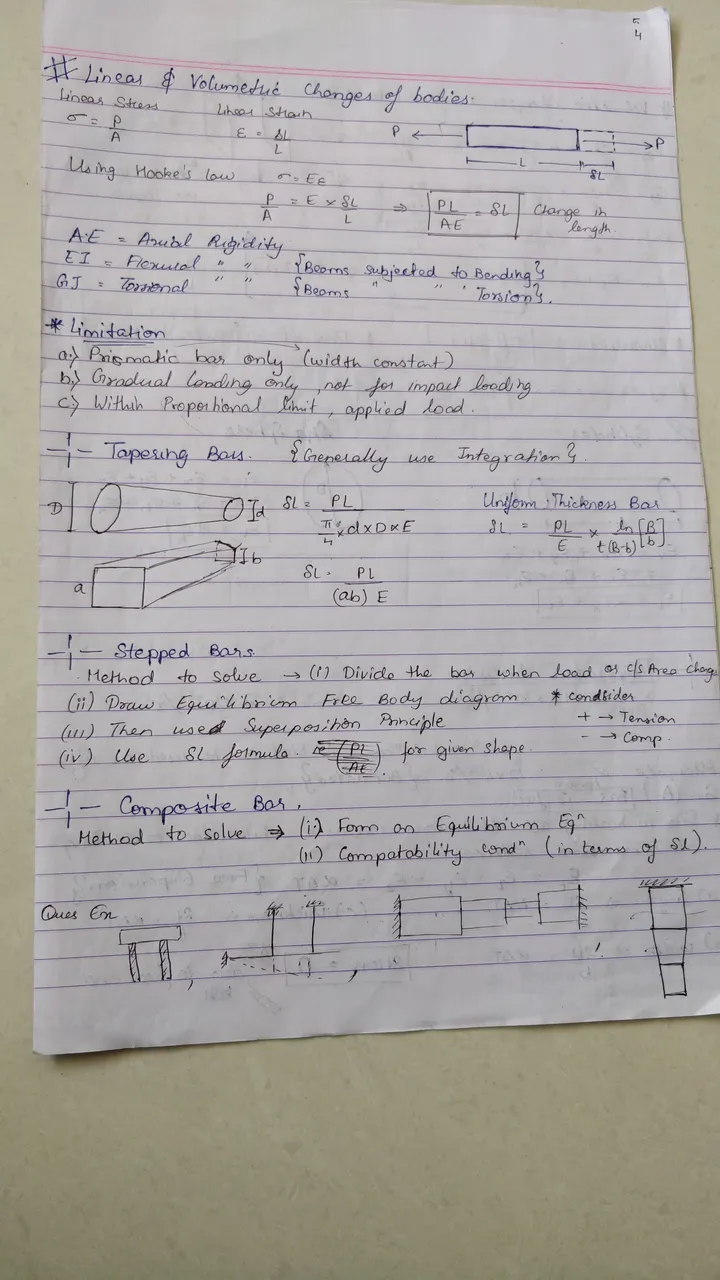 5
4
# Linear & Volumetric Changes of bodies.
Linear Stress Linear Strain
σ = P/A ε = δL/L P P
L δL
Using Hooke's law σ = Eε
P/A = E × δL/L ⇒ PL/AE = δL Change in length.
A·E = Axial Rigidity
EI = Flexural " " {Beams subjected to Bending}
GJ = Torsional " " {Beams " " " Torsion}.
* Limitation
a) Prismatic bar only (width constant)
b) Gradual loading only, not for impact loading
c) Within Proportional limit, applied load.
Tapering Bars. {Generally use Integration}.
D d δL = PL / (π/4 × d × D × E) Uniform Thickness Bar
δL = PL/E × ln[B/b] / t(B-b)
a b δL = PL / (ab) E
Stepped Bars.
Method to solve → (i) Divide the bar when load or c/s Area change
(ii) Draw Equilibrium Free Body diagram * condsider
(iii) Then used Superposition Principle + → Tension
(iv) Use δL formula. ie (PL/AE) for given shape. - → Comp.
Composite Bar.
Method to solve ⇒ (i) Form an Equilibrium Eqⁿ
(ii) Compatability condⁿ (in terms of δL).
Ques Ex